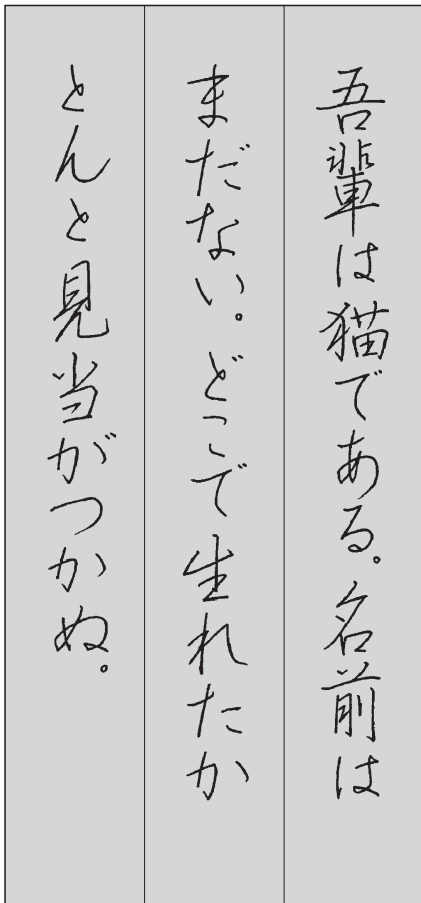 吾輩は猫である。名前は
まだない。どこで生れたか
とんと見当がつかぬ。